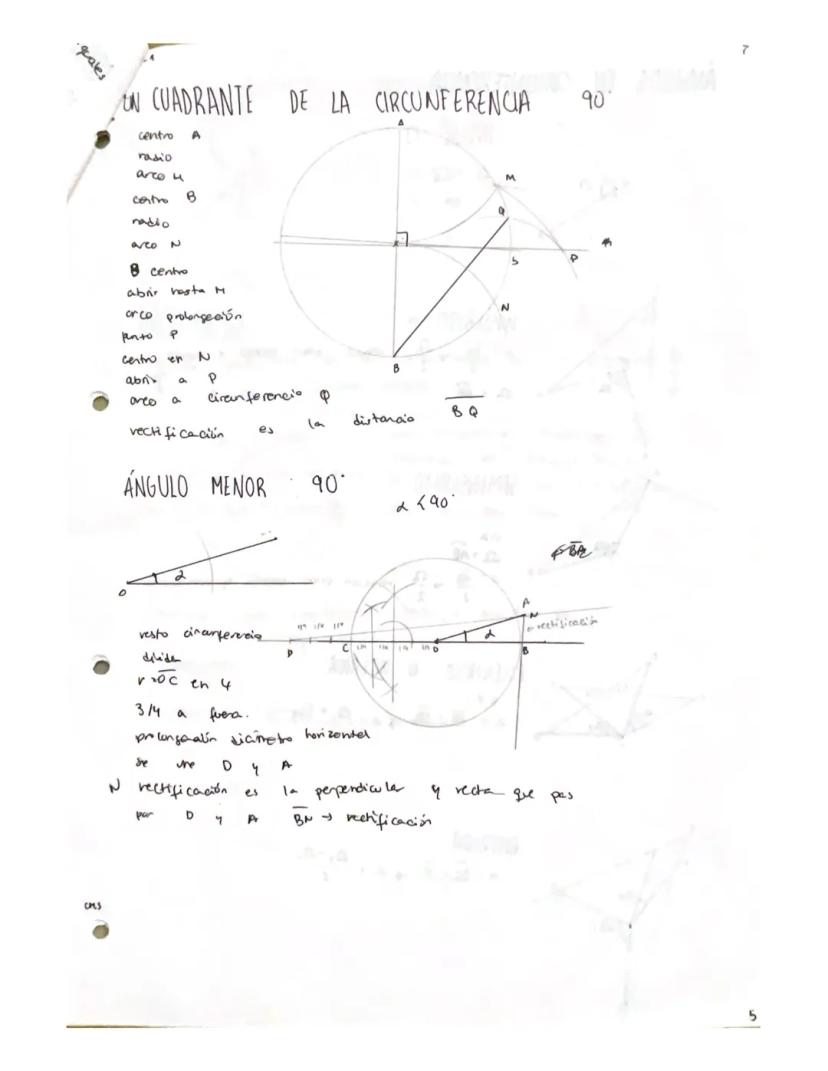 7
UN CUADRANTE DE LA CIRCUNFERENCIA 90°
centro A
radio
arco M
centro B
radio
arco N
B centro
abrir hasta M
arco prolongación
punto P
centro en N
abrir a P
arco a circunferencia Q
rectificación es la distancia BQ
A
M
Q
S
P
N
B
ÁNGULO MENOR 90°
α < 90°
α
O
A
N
rectificación
α
D
C
O
B
resto circunferencia
divide
r = OC en 4
3/4 a fuera.
prolongación diámetro horizontal
se une D y A
N rectificación es la perpendicular y recta que pas
por D y A BN → rectificación
5